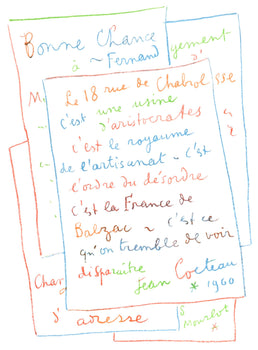 Bonne Chance
à ~ Fernand
gement
Le 18 rue de Chabrol
sse
c'est une usine
d'aristocrates
c'est le royaume
de l'artisanat ~ c'est
l'ordre du désordre
c'est la France de
Balzac ~ c'est ce
qu'on tremble de voir
disparaître
Jean Cocteau
* 1960
Chan
d'adresse
Mourlot
*